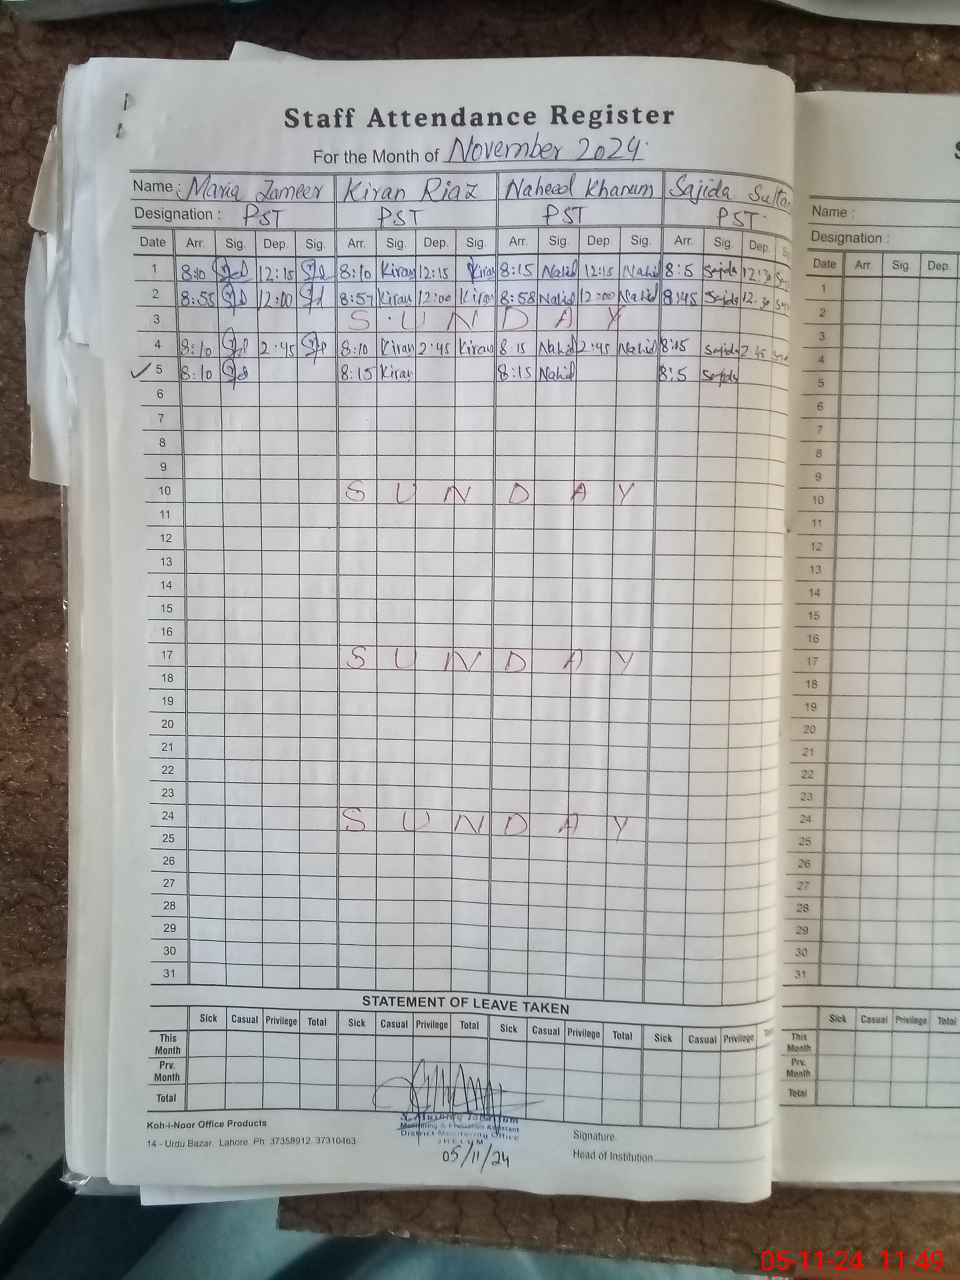 Staff Attendance Register
For the Month of November 2024
Name : Maria Zameer Kiran Riaz Naheed Khanum Sajida Sulta
Designation : PST PST PST PST
Date Arr. Sig. Dep. Sig. Arr. Sig. Dep. Sig. Arr. Sig. Dep. Sig. Arr. Sig. Dep.
1 8:10 12:15 8:10 Kiran 12:15 Kiran 8:15 Nahid 12:15 Nahid 8:5 Sajida 12:30
2 8:55 12:00 8:57 Kiran 12:00 Kiran 8:58 Nahid 12:00 Nahid 8:45 Sajida 12:30
3 S U N D A Y
4 8:10 2:45 8:10 Kiran 2:45 Kiran 8:15 Nahid 2:45 Nahid Sajida 2:45
5 8:10 8:15 Kiran 8:15 Nahid 8:5 Sajida
6
7
8
9
10 S U N D A Y
11
12
13
14
15
16
17 S U N D A Y
18
19
20
21
22
23
24 S U N D A Y
25
26
27
28
29
30
31
STATEMENT OF LEAVE TAKEN
Sick Casual Privilege Total Sick Casual Privilege Total Sick Casual Privilege Total Sick Casual Privilege
This Month
Prv. Month
Total
Monitoring & Evaluation Assistant
District Monitoring Office
JHELUM
05/11/24
Koh-i-Noor Office Products
14 - Urdu Bazar, Lahore. Ph: 37358912, 37310463
Signature.
Head of Institution
Name :
Designation :
Date Arr. Sig. Dep.
1
2
3
4
5
6
7
8
9
10
11
12
13
14
15
16
17
18
19
20
21
22
23
24
25
26
27
28
29
30
31
Sick Casual Privilege Total
This Month
Prv. Month
Total
05-11-24 11:49